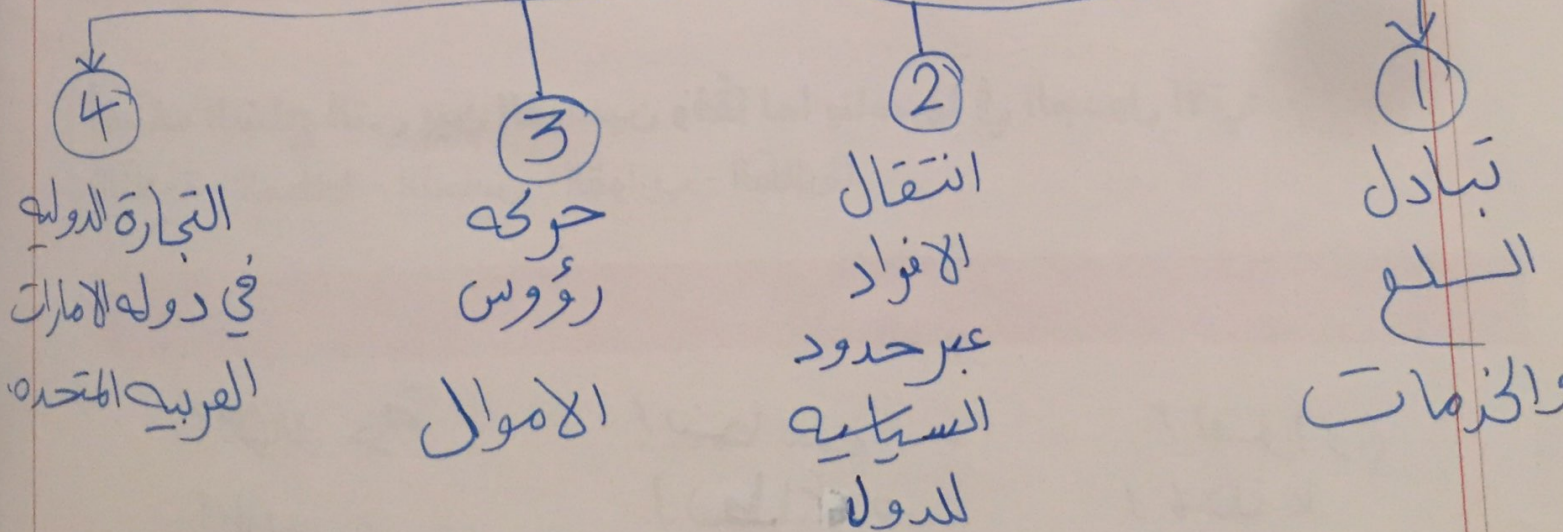 1
تبادل
السلع
والخدمات
2
انتقال
الافراد
عبر حدود
السياسيه
للدوله
3
حركه
رؤوس
الاموال
4
التجارة الدوليه
في دوله الامارات
العربيه المتحده.